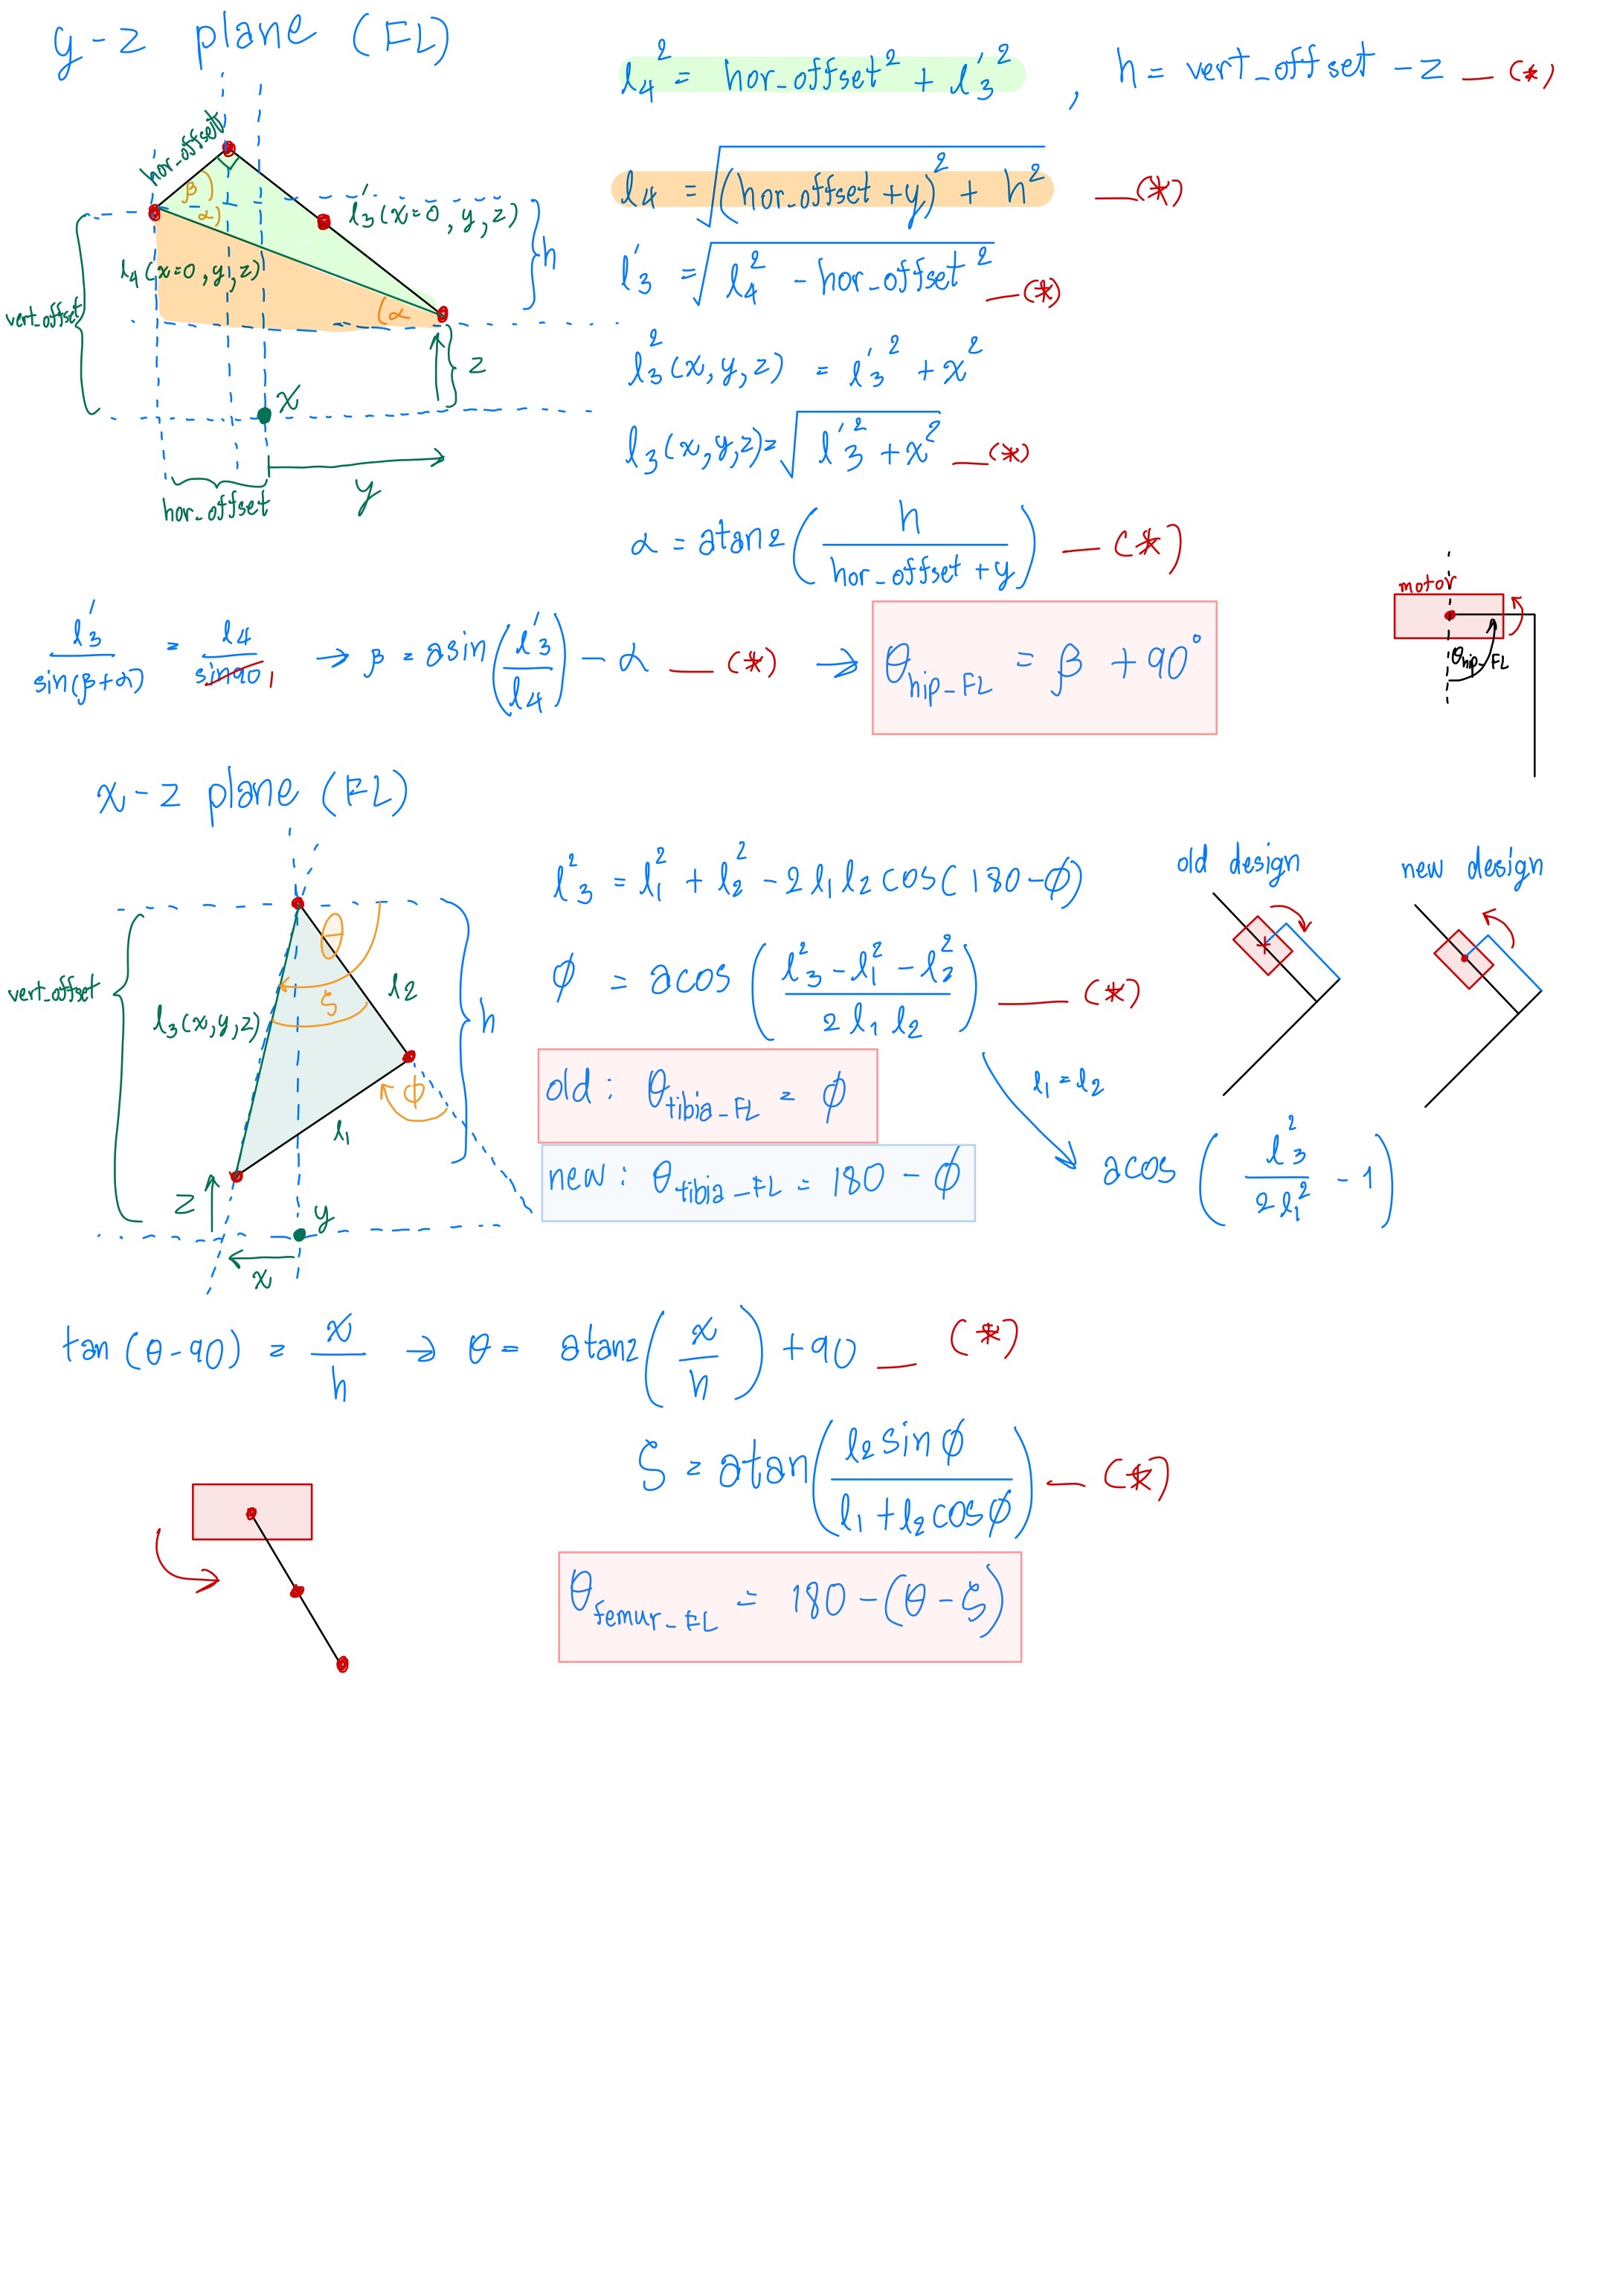 y-z plane (FL)
l₄² = hor_offset² + l₃'² , h = vert_offset - z —(*)
hor_offset
β
α
l₃'(x=0, y, z)
h
l₄(x=0, y, z)
α
vert_offset
z
x
y
hor_offset
l₄ = √((hor_offset + y)² + h²) —(*)
l₃' = √(l₄² - hor_offset²) —(*)
l₃²(x,y,z) = l₃'² + x²
l₃(x,y,z) = √(l₃'² + x²) —(*)
α = atan2(h / (hor_offset + y)) —(*)
l₃' / sin(β+α) = l₄ / sin90 1 → β = asin(l₃' / l₄) - α —(*) → θhip-FL = β + 90°
motor
θhip-FL
x-z plane (FL)
vert_offset
θ
ζ
l₂
l₃(x,y,z)
h
φ
l₁
z
y
x
l₃² = l₁² + l₂² - 2l₁l₂cos(180-φ)
φ = acos((l₃² - l₁² - l₂²) / 2l₁l₂) —(*)
old: θtibia-FL = φ
new: θtibia-FL = 180 - φ
l₁ = l₂
acos(l₃² / 2l₁² - 1)
old design
new design
tan(θ-90) = x/h → θ = atan2(x/h) + 90 — (*)
ζ = atan(l₂sinφ / (l₁ + l₂cosφ)) — (*)
θfemur-FL = 180 - (θ - ζ)